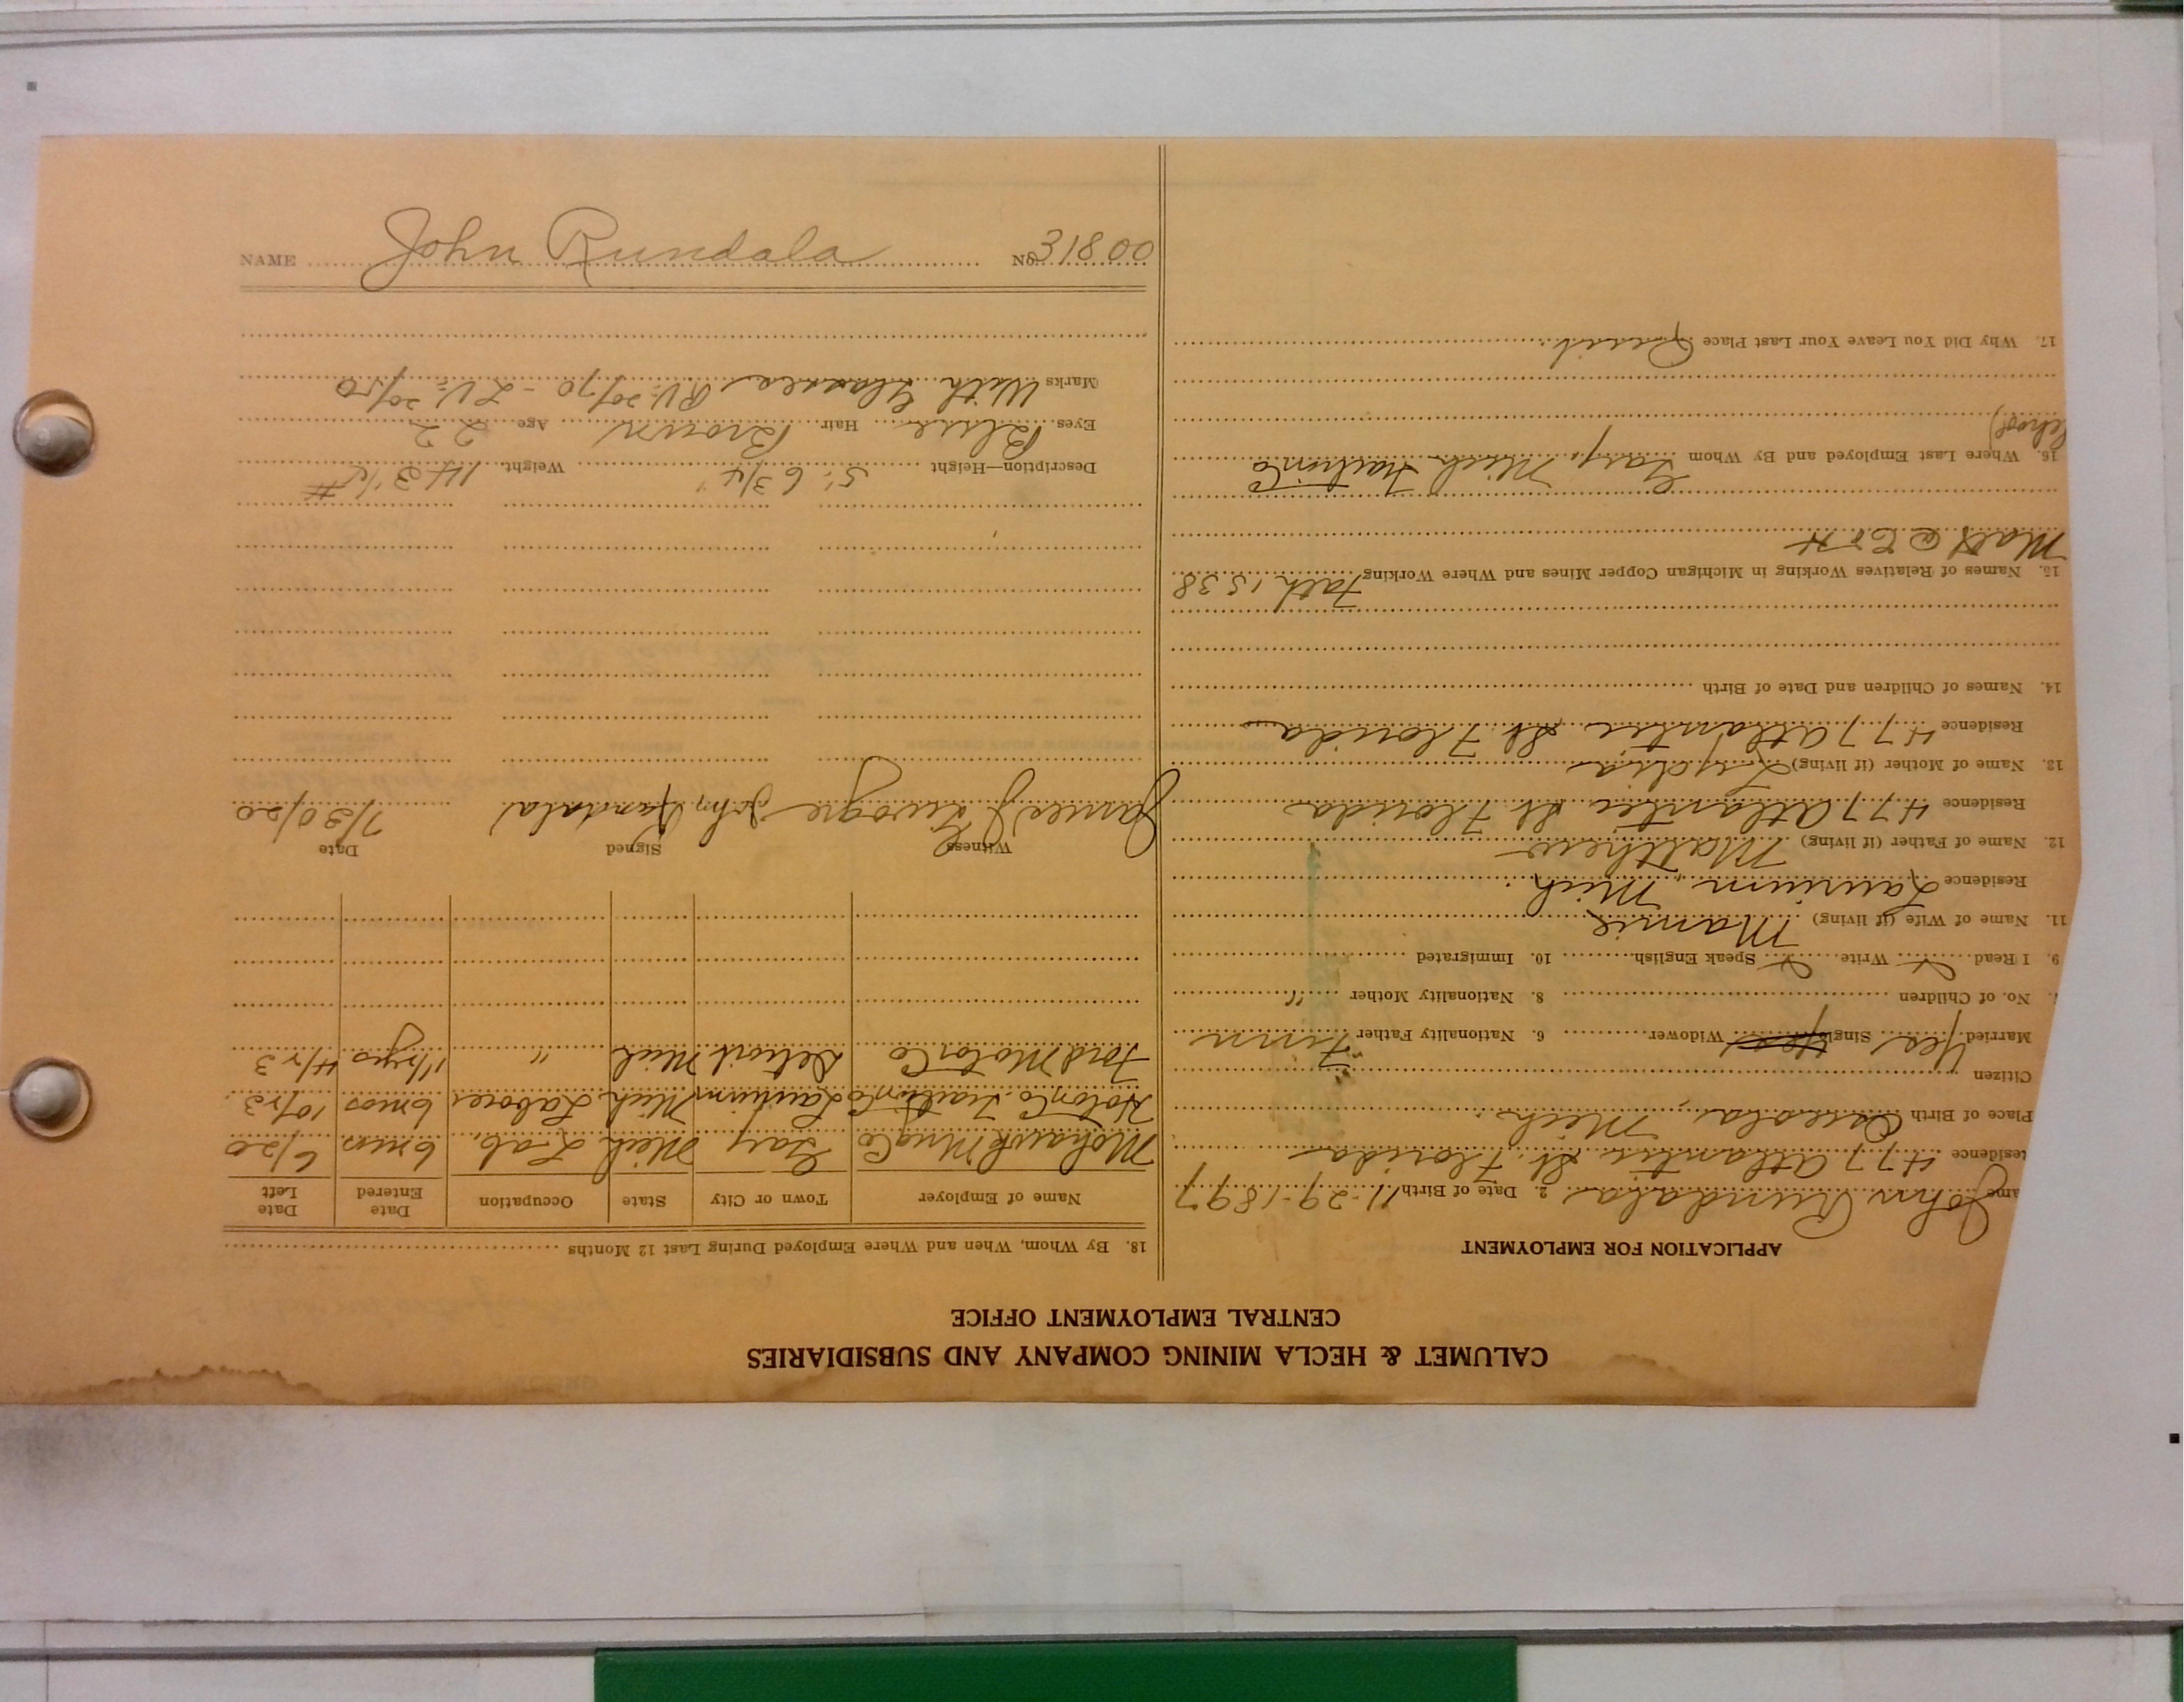 CALUMET & HECLA MINING COMPANY AND SUBSIDIARIES
CENTRAL EMPLOYMENT OFFICE
APPLICATION FOR EMPLOYMENT
ame John Rundala 2. Date of Birth 11-29-1897
esidence 477 Atlantic St. Florida
Place of Birth Osceola, Mich.
Citizen
Married Yes Single Yes Widower 6. Nationality Father Finn
No. of Children 8. Nationality Mother "
9. I Read Write Speak English 10. Immigrated
11. Name of Wife (if living) Mamie
Residence Laurium, Mich.
12. Name of Father (if living) Matthew
Residence 477 Atlantic St. Florida
13. Name of Mother (if living) Lydia
Residence 477 Atlantic St. Florida
14. Names of Children and Date of Birth
15. Names of Relatives Working in Michigan Copper Mines and Where Working Fath 1538
Matt @ C & H
16. Where Last Employed and By Whom Gay, Mich Traction Co
17. Why Did You Leave Your Last Place Quit
18. By Whom, When and Where Employed During Last 12 Months
Name of Employer Town or City State Occupation Date Entered Date Left
Mohawk Mng Co Gay Mich Lab. 6 mos 6/20
Hoton Co. Traction Co Laurium Mich Laborer 6 mos 10/23
Ford Motor Co Detroit Mich " 4/23
Witness Signed Date
James J John Rundala 7/30/20
Description—Height 5' 6 3/4" Weight 143 1/2 #
Eyes Blue Hair Brown Age 22
Marks With Glasses RV. 20/70 - LV. 20/50
NAME John Rundala No. 31800